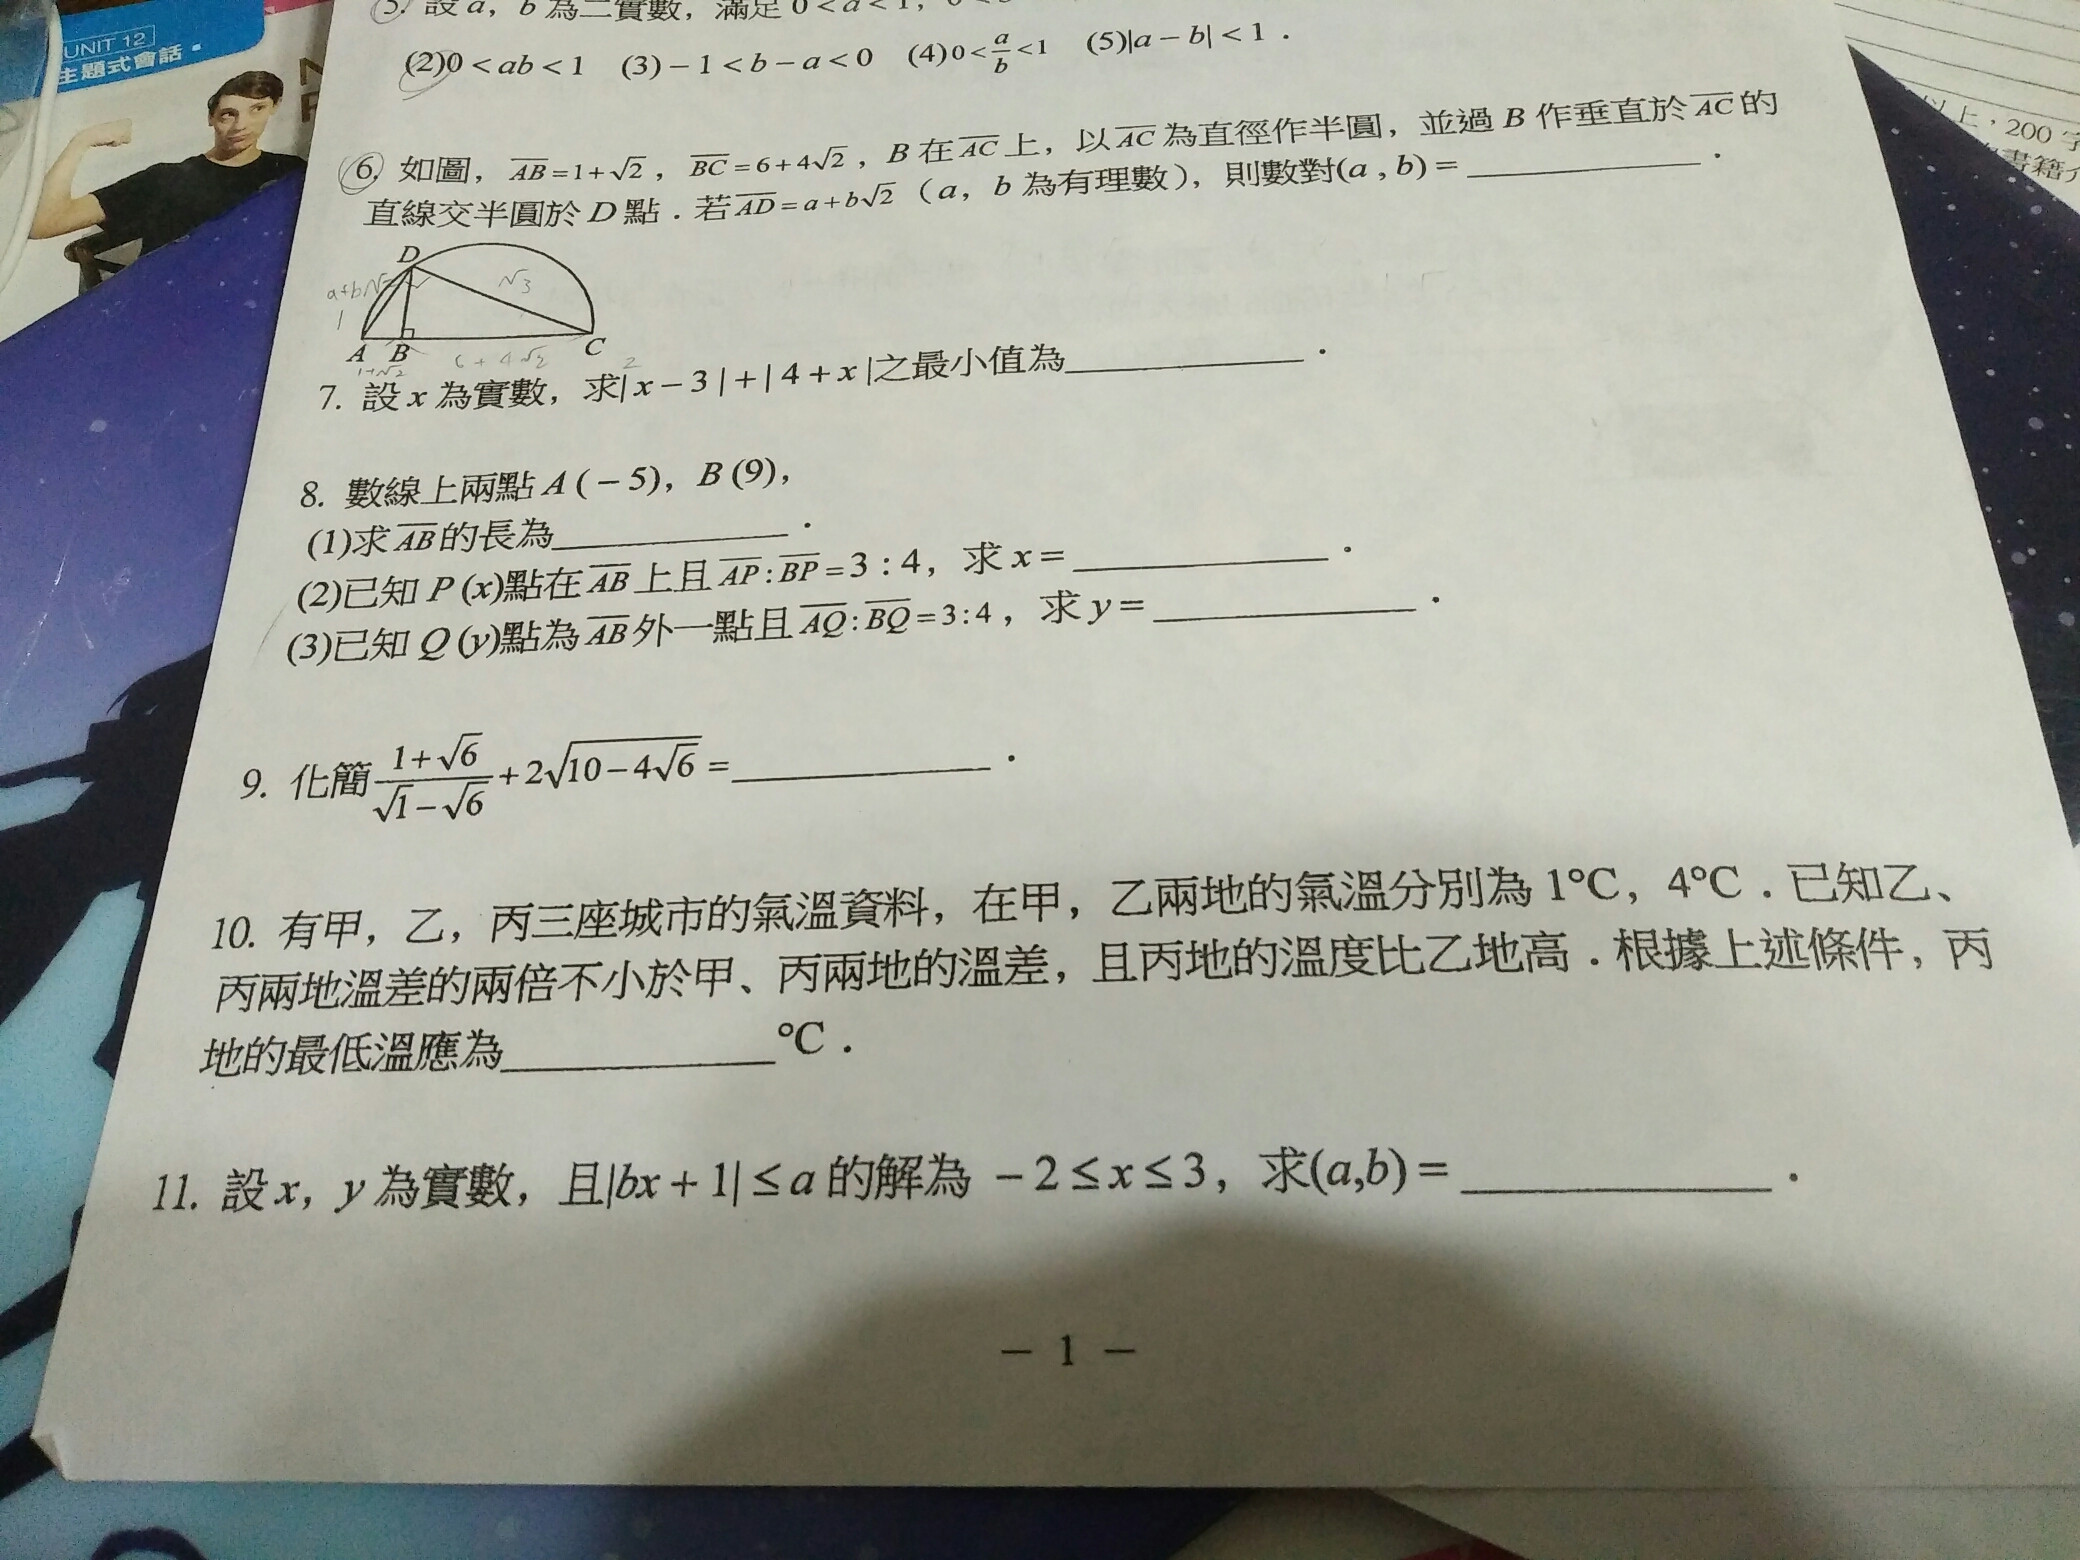 UNIT 12
主題式會話。
5. 設 a，b 為二實數，滿足 0 < a < 1，
(2)0 < ab < 1 (3) − 1 < b − a < 0 (4)0 < \frac{a}{b} < 1 (5)|a − b| < 1．
以上，200 字
書籍
6. 如圖，\overline{AB} = 1+√2，\overline{BC} = 6+4√2，B 在 \overline{AC} 上，以 \overline{AC} 為直徑作半圓，並過 B 作垂直於 \overline{AC} 的
直線交半圓於 D 點．若 \overline{AD} = a+b√2（a，b 為有理數），則數對(a , b) = ________．
D
a+b√2
√3
1
A B C
1+√2 6+4√2 2
7. 設 x 為實數，求| x − 3 | + | 4 + x |之最小值為________．
8. 數線上兩點 A ( − 5)，B (9)，
(1)求 \overline{AB} 的長為________．
(2)已知 P (x)點在 \overline{AB} 上且 \overline{AP} : \overline{BP} = 3 : 4，求 x = ________．
(3)已知 Q (y)點為 \overline{AB} 外一點且 \overline{AQ} : \overline{BQ} = 3 : 4，求 y = ________．
9. 化簡 \frac{1+√6}{√1−√6} + 2\sqrt{10−4√6} = ________．
10. 有甲，乙，丙三座城市的氣溫資料，在甲，乙兩地的氣溫分別為 1°C，4°C．已知乙、
丙兩地溫差的兩倍不小於甲、丙兩地的溫差，且丙地的溫度比乙地高．根據上述條件，丙
地的最低溫應為________°C．
11. 設 x，y 為實數，且|bx + 1| ≤ a 的解為 − 2 ≤ x ≤ 3，求(a,b) = ________．
− 1 −